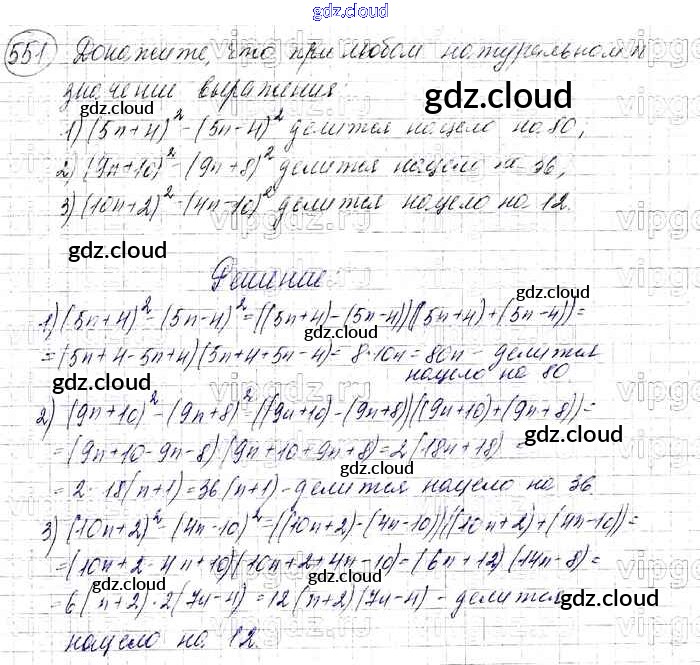 gdz.cloud
551 Докажите, что при любом натуральном n
значении выражения:
gdz.cloud
1) (5n+4)² - (5n-4)² делится нацело на 80,
2) (9n+10)² - (9n+8)² делится нацело на 36,
3) (10n+2)² - (4n-10)² делится нацело на 12.
Решение:
1) (5n+4)² - (5n-4)² = ((5n+4)-(5n-4))((5n+4)+(5n-4))=
=(5n+4-5n+4)(5n+4+5n-4)= 8·10n=80n - делится
нацело на 80.
2) (9n+10)² - (9n+8)² = ((9n+10)-(9n+8))((9n+10)+(9n+8))=
=(9n+10-9n-8)(9n+10+9n+8)=2(18n+18) =
=2·18(n+1)=36(n+1) - делится нацело на 36.
3) (10n+2)² - (4n-10)² = ((10n+2)-(4n-10))((10n+2)+(4n-10))=
=(10n+2-4n+10)(10n+2+4n-10)=(6n+12)(14n-8)=
=6(n+2)·2(7n-4)=12(n+2)(7n-4) - делится
нацело на 12.